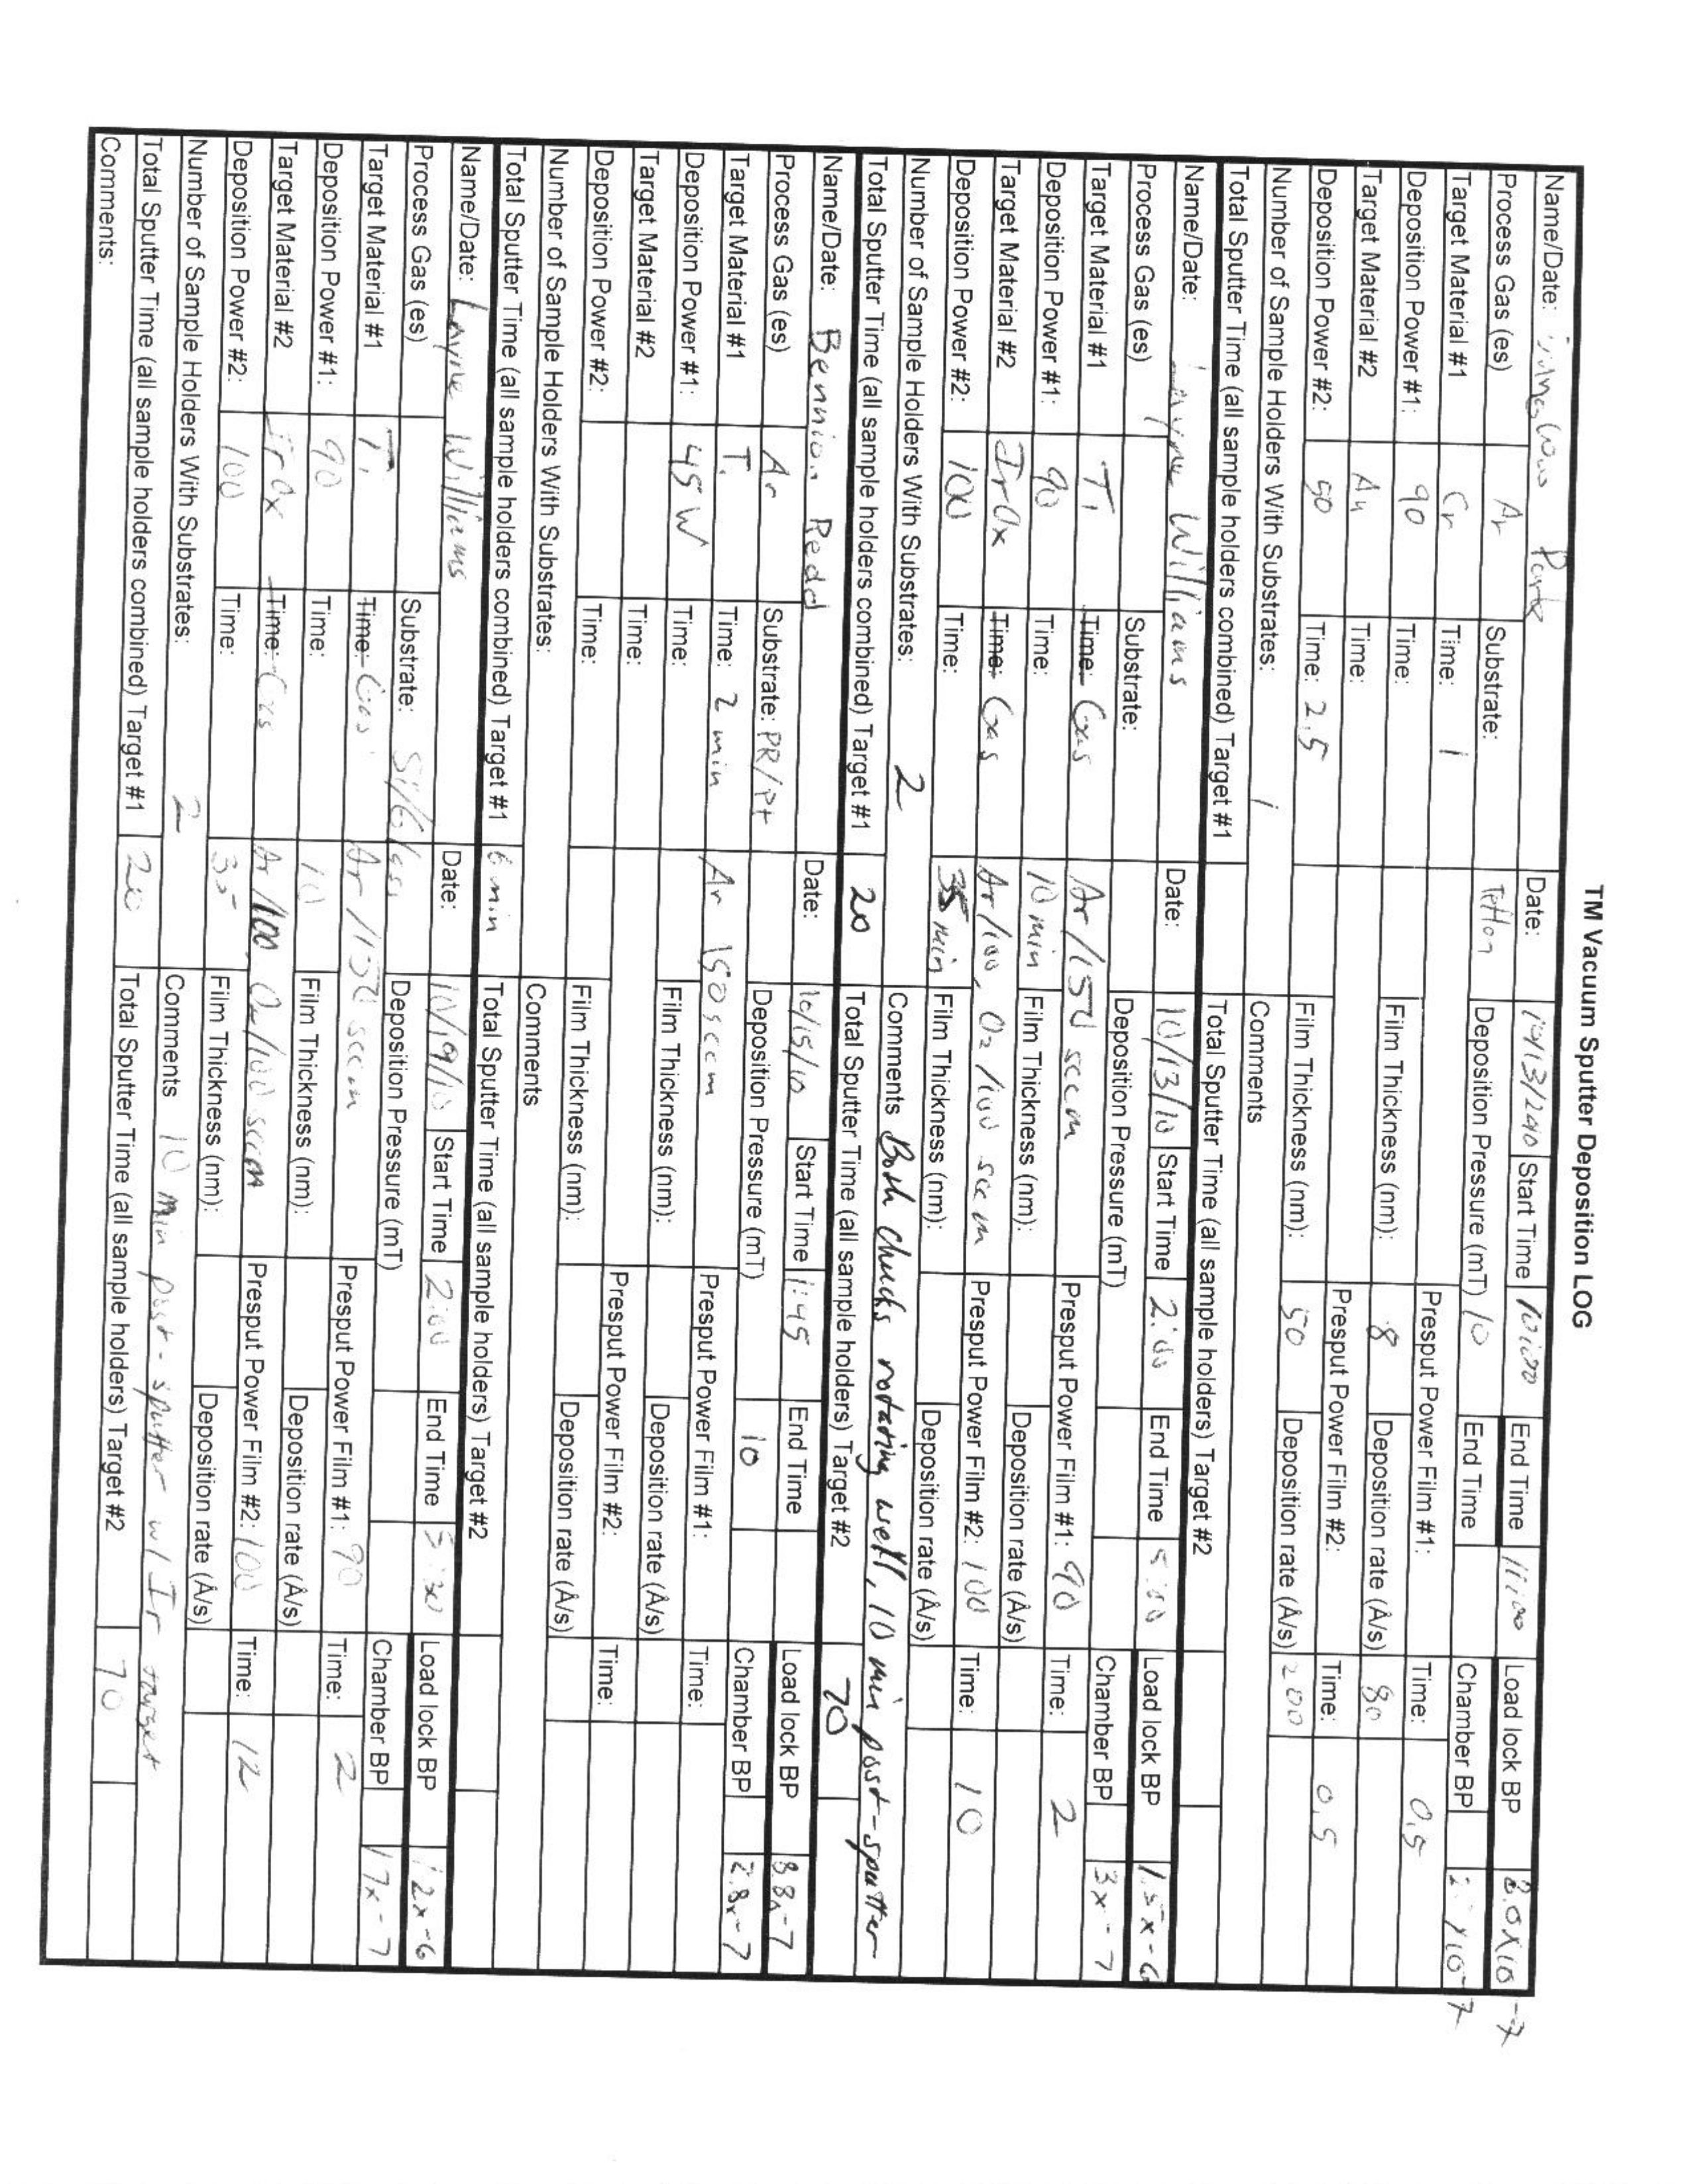 TM Vacuum Sputter Deposition LOG
Name/Date: Park Date: Start Time 10:00 End Time 11:00 Load lock BP 8.0x10-7
Process Gas (es) Ar Substrate: Teflon Deposition Pressure (mT) 10 End Time Chamber BP x10-7
Target Material #1 Cr Time: 1 Presput Power Film #1: Time: 0.5
Deposition Power #1: 90 Time: Film Thickness (nm): 8 Deposition rate (Å/s) 80
Target Material #2 Au Time: Presput Power Film #2: Time: 0.5
Deposition Power #2: 50 Time: 2.5 Film Thickness (nm): 50 Deposition rate (Å/s) 200
Number of Sample Holders With Substrates: 1 Comments
Total Sputter Time (all sample holders combined) Target #1 Total Sputter Time (all sample holders) Target #2
Name/Date: Layne Williams Date: 10/13/10 Start Time 2:00 End Time 5:00 Load lock BP 1.5x-6
Process Gas (es) Substrate: Deposition Pressure (mT) Chamber BP 3x-7
Target Material #1 Ti Time: Gas Ar/150 sccm Presput Power Film #1: 90 Time: 2
Deposition Power #1: 90 Time: 10 min Film Thickness (nm): Deposition rate (Å/s)
Target Material #2 IrOx Time: Gas Ar/100, O2/100 sccm Presput Power Film #2: 100 Time: 10
Deposition Power #2: 100 Time: 35 min Film Thickness (nm): Deposition rate (Å/s)
Number of Sample Holders With Substrates: 2 Comments Both chucks rotating well, 10 min post-sputter
Total Sputter Time (all sample holders combined) Target #1 20 Total Sputter Time (all sample holders) Target #2 70
Name/Date: Bennion Redd Date: 10/15/10 Start Time 1:45 End Time Load lock BP 8.8x-7
Process Gas (es) Ar Substrate: PR/Pt Deposition Pressure (mT) 10 Chamber BP 2.8x-7
Target Material #1 Ti Time: 2 min Ar 150 sccm Presput Power Film #1: Time:
Deposition Power #1: 45 W Time: Film Thickness (nm): Deposition rate (Å/s)
Target Material #2 Time: Presput Power Film #2: Time:
Deposition Power #2: Time: Film Thickness (nm): Deposition rate (Å/s)
Number of Sample Holders With Substrates: Comments
Total Sputter Time (all sample holders combined) Target #1 6 min Total Sputter Time (all sample holders) Target #2
Name/Date: Layne Williams Date: 10/19/10 Start Time 2:00 End Time 5:30 Load lock BP 1.2x-6
Process Gas (es) Substrate: Deposition Pressure (mT) Chamber BP 1.7x-7
Target Material #1 Ti Time: Gas Ar/150 sccm Presput Power Film #1: 90 Time: 2
Deposition Power #1: 90 Time: 10 Film Thickness (nm): Deposition rate (Å/s)
Target Material #2 IrOx Time: Gas Ar/100, O2/100 sccm Presput Power Film #2: 100 Time: 12
Deposition Power #2: 100 Time: 35 Film Thickness (nm): Deposition rate (Å/s)
Number of Sample Holders With Substrates: 2 Comments 10 min post-sputter w/ Ir target
Total Sputter Time (all sample holders combined) Target #1 20 Total Sputter Time (all sample holders) Target #2 70
Comments: